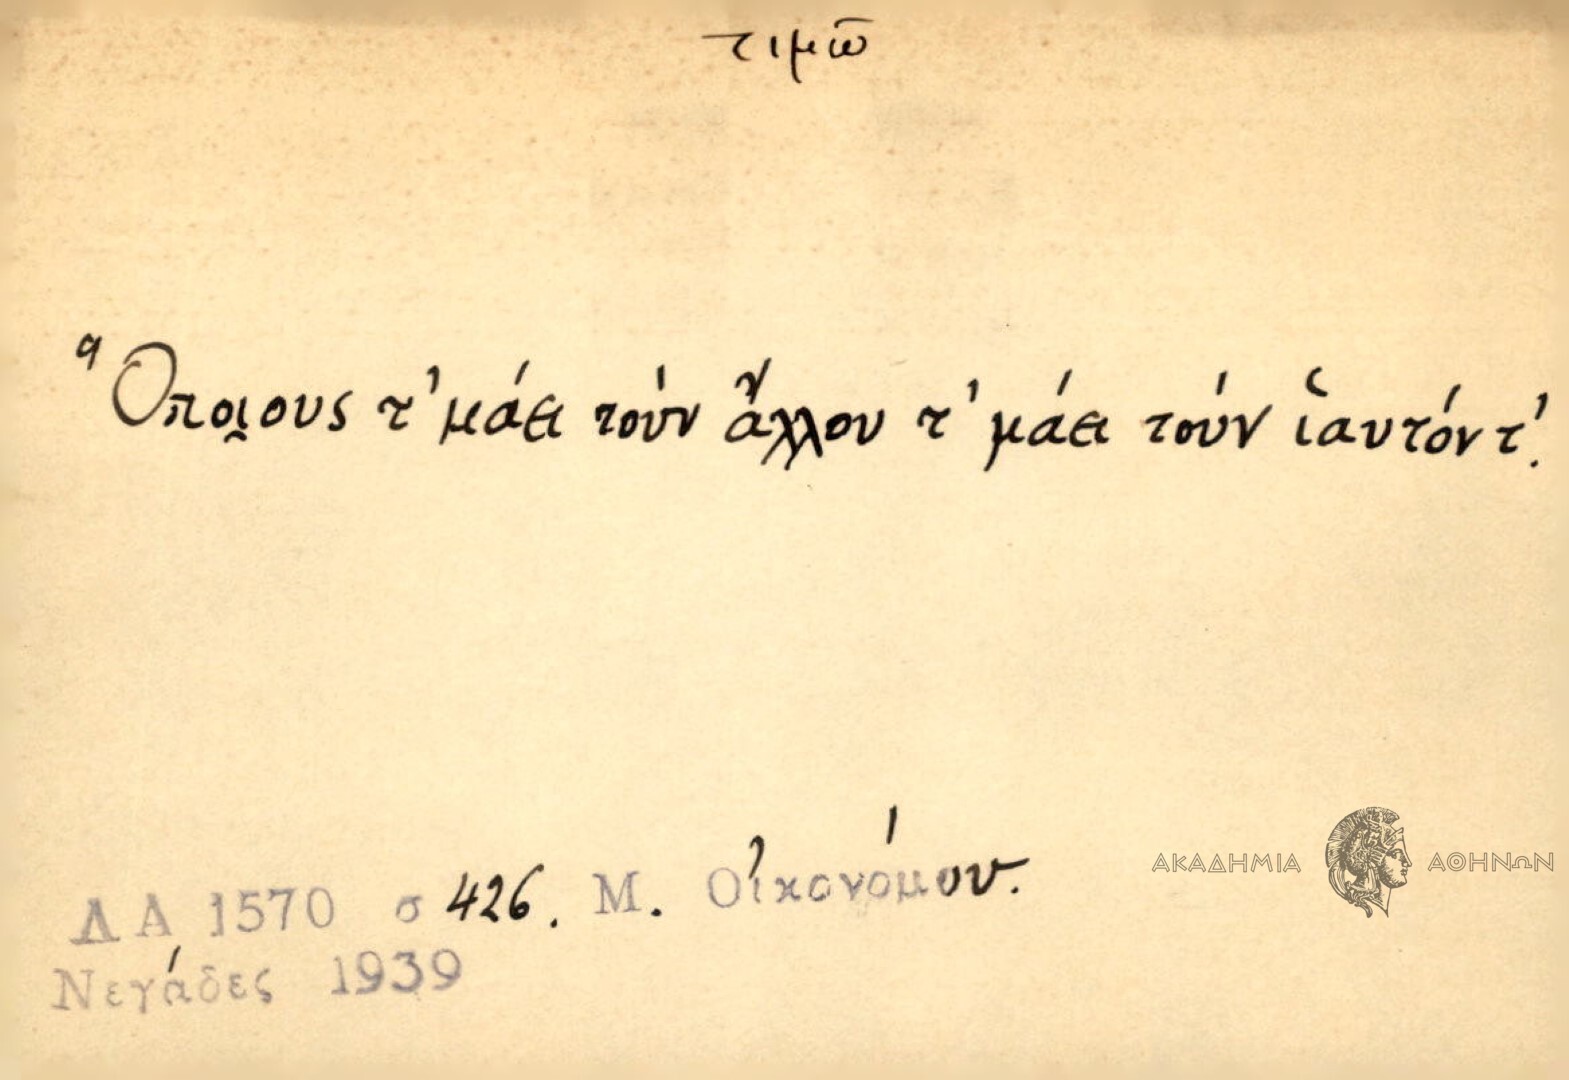 τιμῶ
Ὅποι̮ους τ' μάει τοὺν ἄλλου τ' μάει τοὺν ἱαυτόν τ'.
ΛΑ 1570 σ 426. Μ. Οἰκονόμου.
Νεγάδες 1939
ΑΚΑΔΗΜΙΑ ΑΘΗΝΩΝ